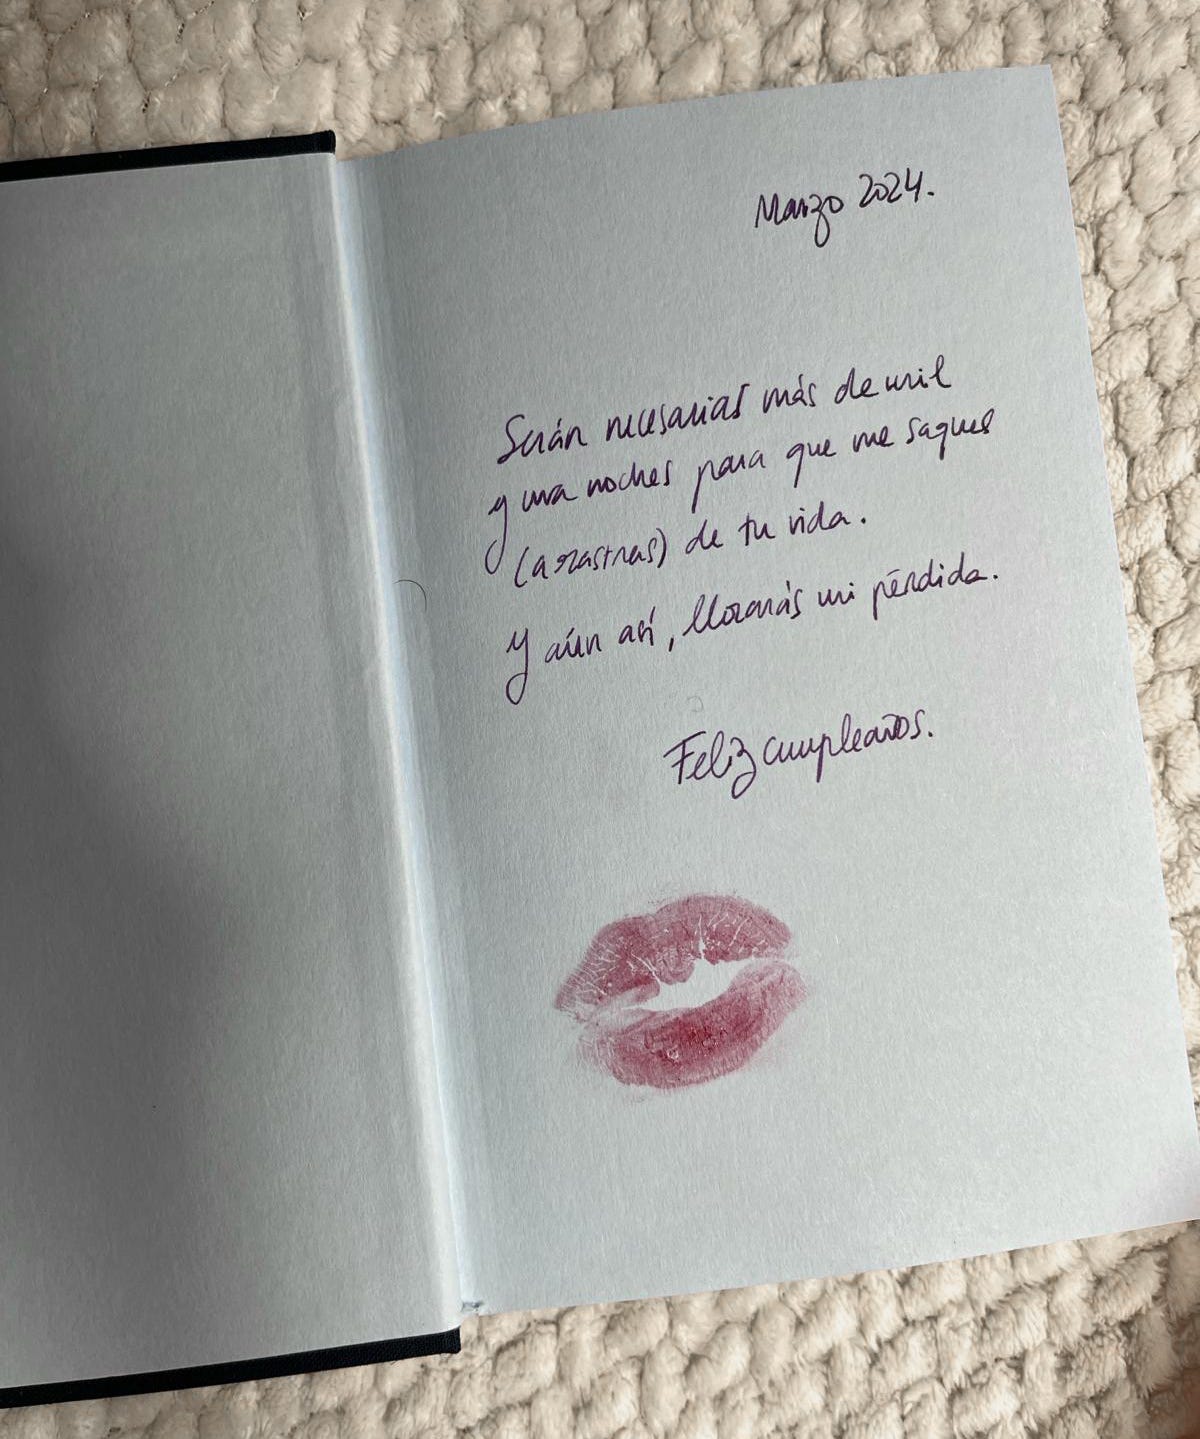 Marzo 2024.
Serán necesarias más de mil
y una noches para que me saques
(a rastras) de tu vida.
Y aún así, llorarás mi pérdida.
Feliz cumpleaños.